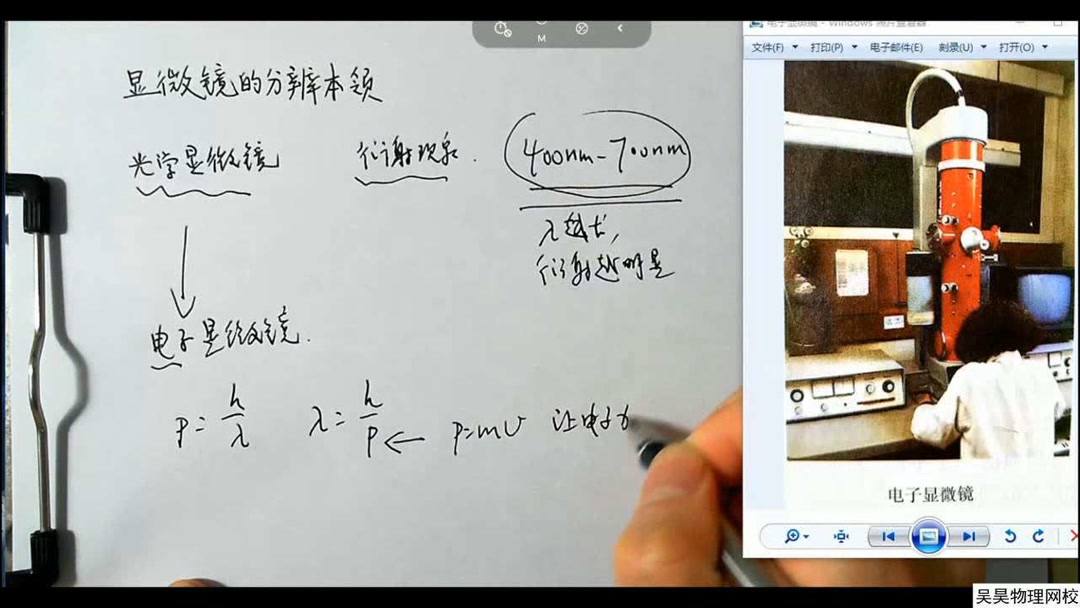 显微镜的分辨本领
光学显微镜 衍射现象. 400nm-700nm
λ越长,
衍射越明显
电子显微镜.
p=h/λ λ=h/p ← p=mv 让电子
M
电子显微镜 - Windows 照片查看器
文件(F) 打印(P) 电子邮件(E) 刻录(U) 打开(O)
电子显微镜
吴昊物理网校